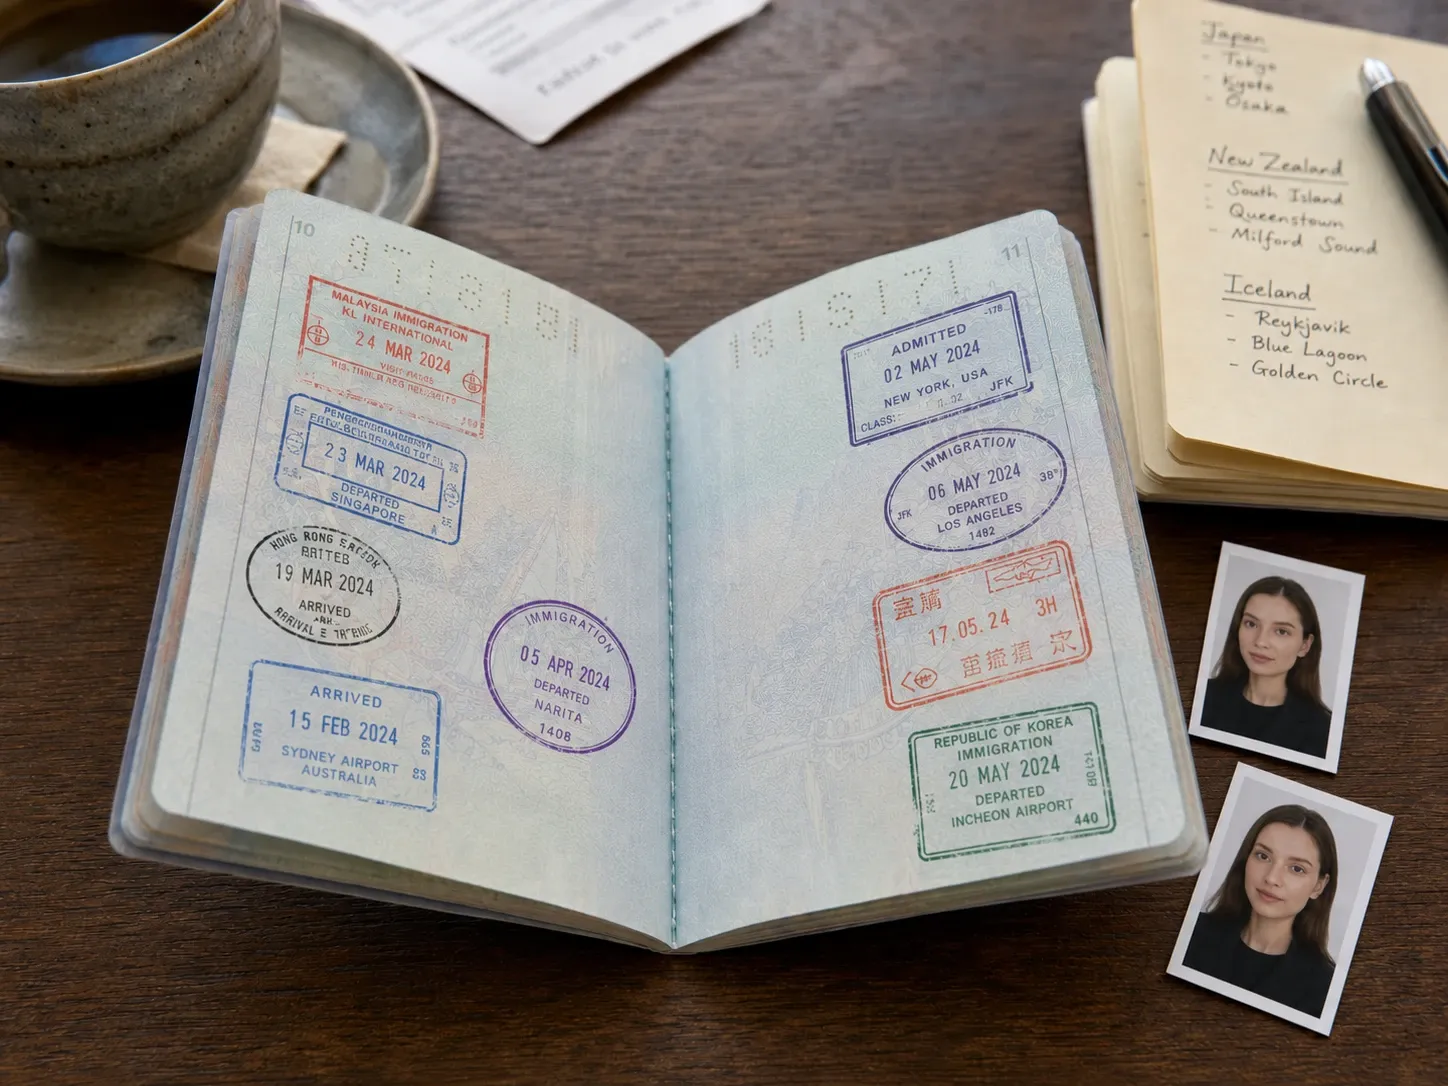 10
MALAYSIA IMMIGRATION
KL INTERNATIONAL
24 MAR 2024
23 MAR 2024
DEPARTED
SINGAPORE
HONG
19 MAR 2024
ARRIVED
ARRIVED
15 FEB 2024
SYDNEY AIRPORT
AUSTRALIA
IMMIGRATION
05 APR 2024
DEPARTED
NARITA
1408
11
ADMITTED
02 MAY 2024
NEW YORK, USA
JFK
CLASS:
IMMIGRATION
06 MAY 2024
JFK
DEPARTED
LOS ANGELES
1482
17.05.24 3H
REPUBLIC OF KOREA
IMMIGRATION
20 MAY 2024
DEPARTED
INCHEON AIRPORT
440
Japan
- Tokyo
- Kyoto
- Osaka
New Zealand
- South Island
- Queenstown
- Milford Sound
Iceland
- Reykjavik
- Blue Lagoon
- Golden Circle